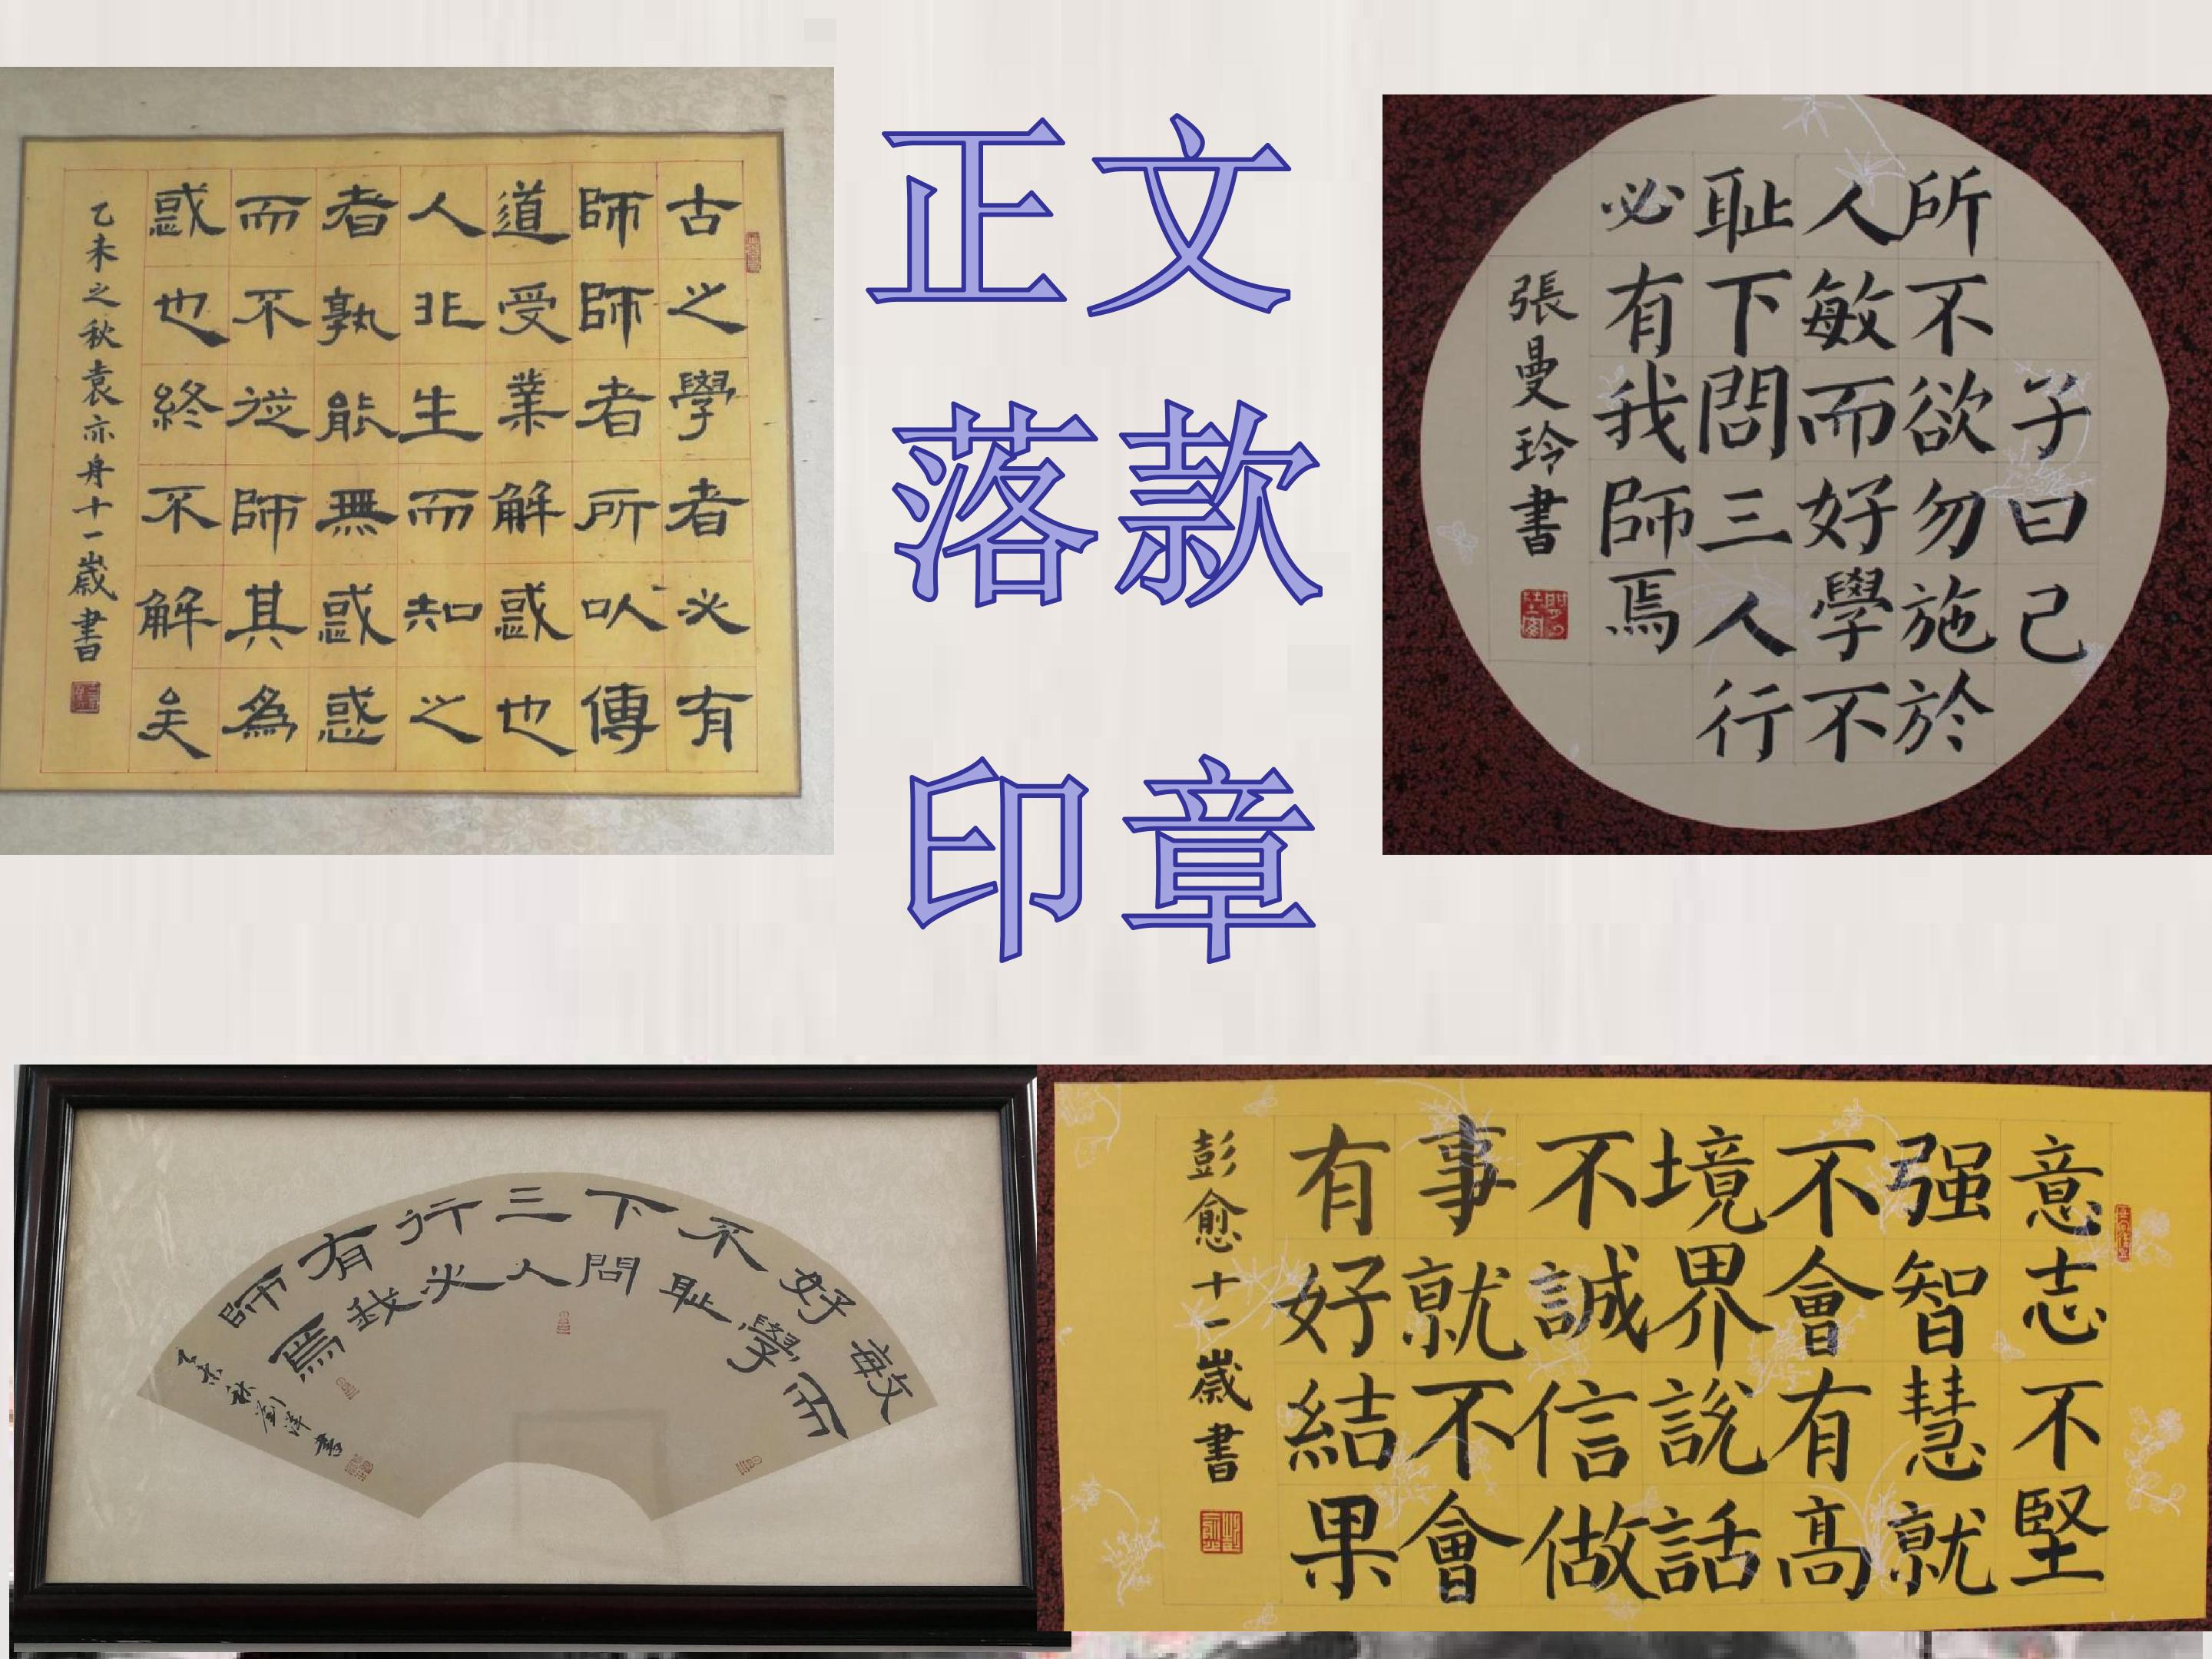 正文
落款
印章
古之學者必有
師師者所以傳
道受業解惑也
人非生而知之
者孰能無惑惑
而不從師其為
惑也終不解矣
乙未之秋袁亦舟十一歲書
子曰己
所不欲勿施於
人敏而好學不
耻下問三人行
必有我師焉
張曼玲書
敏
而
好
學
不
耻
下
問
三
人
行
必
有
我
師
焉
乙未秋
書
意志不堅
强智慧就
不會有高
境界説話
不誠信做
事就不會
有好結果
彭愈十一歲書